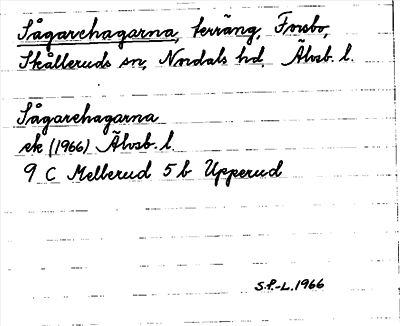 Sågarehagarna, terräng, Forsbo,
Skålleruds sn, Nordals hd, Älvsb. l.
Sågarehagarna
ek (1966) Älvsb. l.
9 C Mellerud 5 b Upperud
S.P.-L. 1966